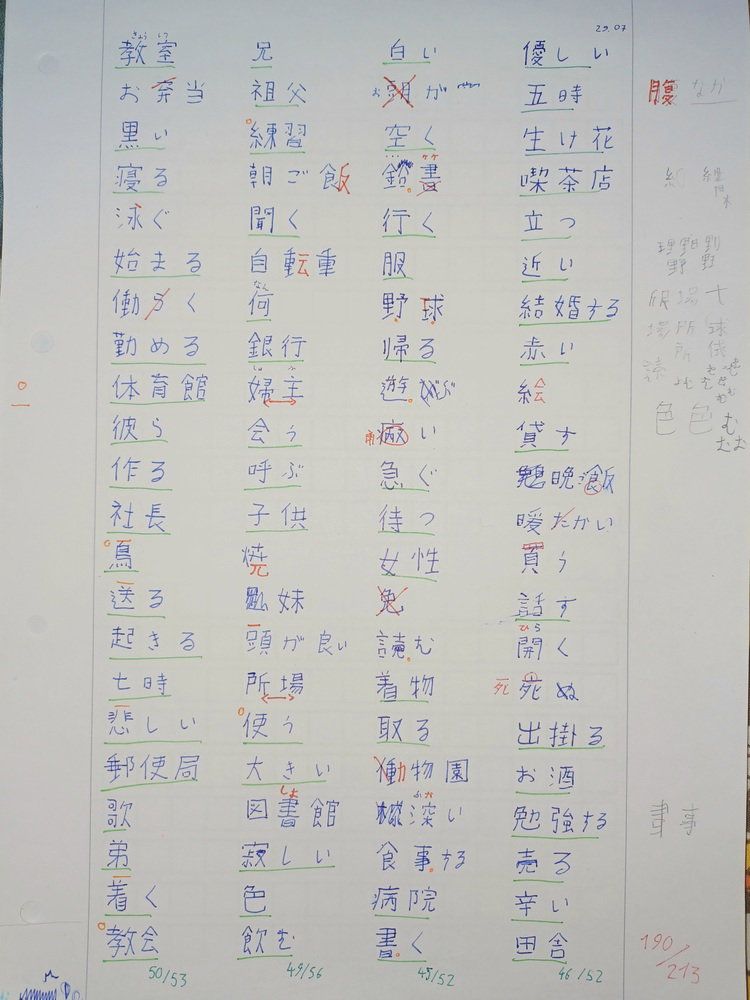 29.07
きょう しつ
教室
お弁当
黒い
寝る
泳ぐ
始まる
働かく
勤める
体育館
彼ら
作る
社長
鳥
送る
起きる
七時
悲しい
郵便局
歌
弟
着く
教会
50/53
兄
祖父
練習
朝ご飯
聞く
自転車
なん
何
銀行
しゅ ふ
婦主
会う
呼ぶ
子供
焼
妹
頭が良い
所場
使う
大きい
しょ
図書館
寂しい
色
飲む
49/56
白い
お朝が
空く
行く
服
野球
帰る
遊ぶ
い
急ぐ
待つ
女性
兔
読む
着物
取る
動物園
ふか
深い
食事する
病院
書く
45/52
優しい
五時
生け花
喫茶店
立つ
近い
結婚する
赤い
絵
貸す
晩ご飯
暖たかい
買う
話す
ひら
開く
死 死ぬ
出掛る
お酒
勉強する
売る
辛い
田舎
46/52
腹 なか
理
野 野
場 十
場所 球
所
色 色 む
むむ
事
190/213